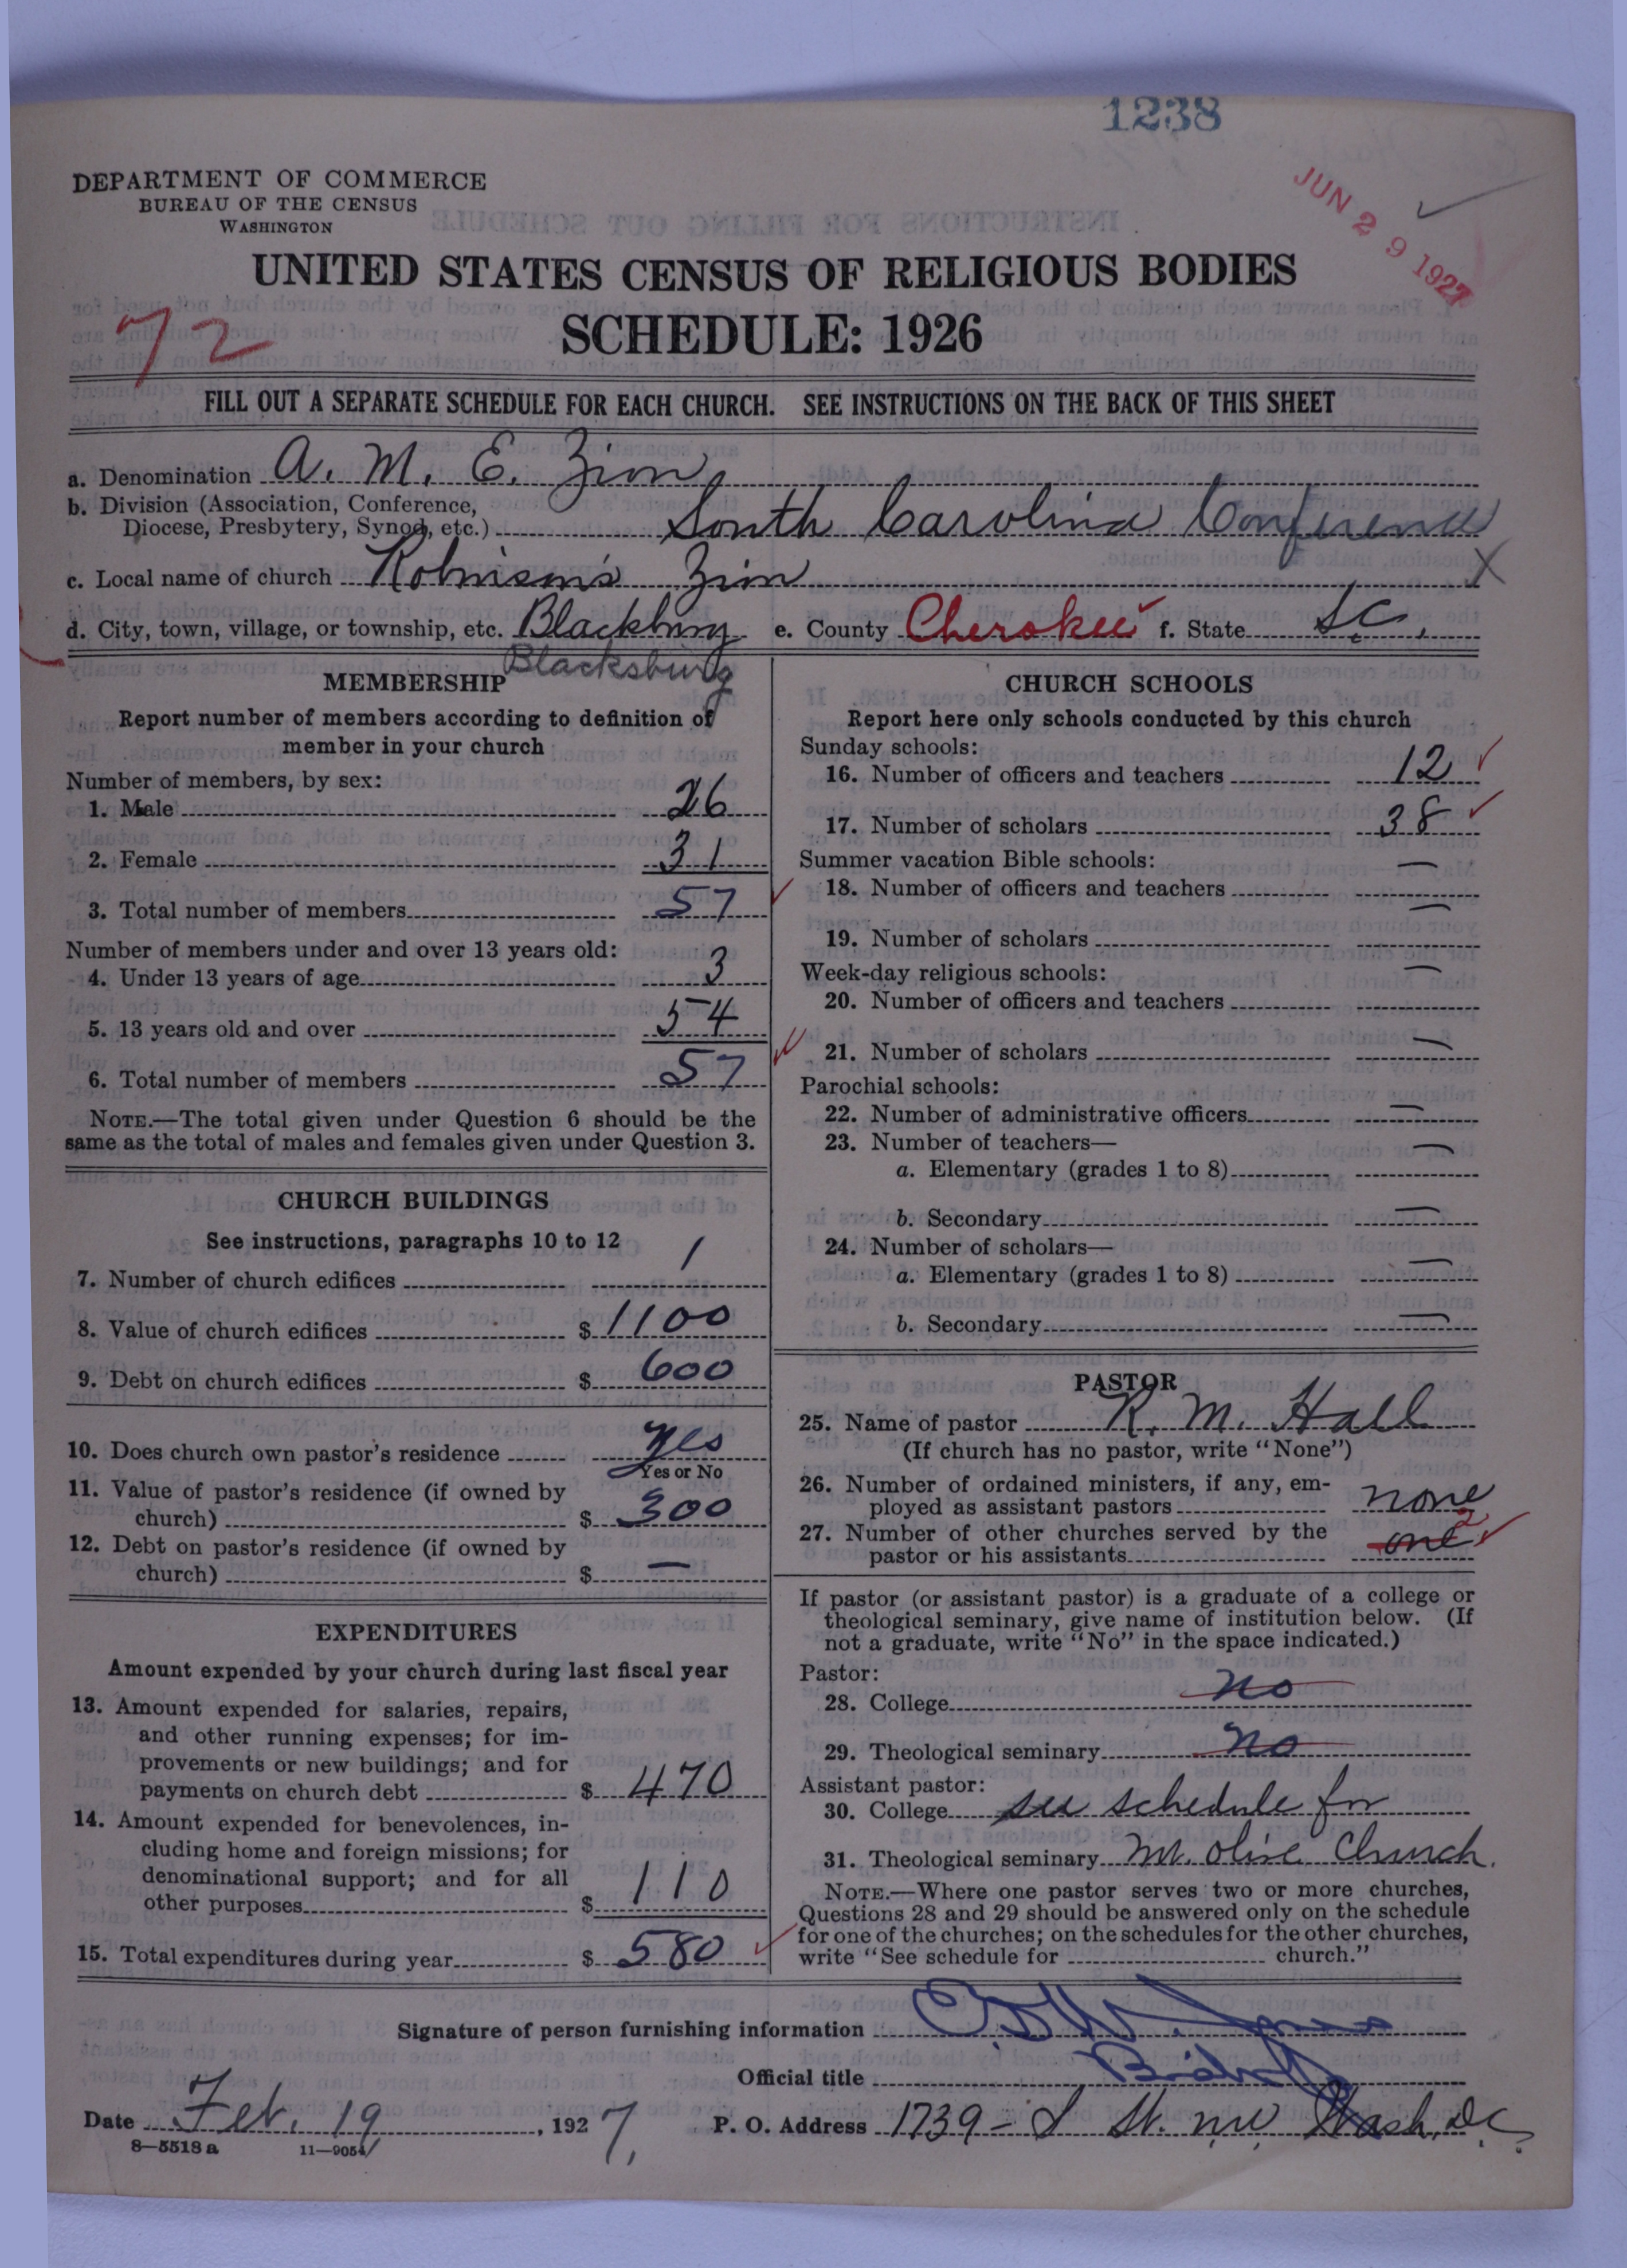 1238
JUN 29 1927
DEPARTMENT OF COMMERCE
BUREAU OF THE CENSUS
WASHINGTON
UNITED STATES CENSUS OF RELIGIOUS BODIES
SCHEDULE: 1926
72
FILL OUT A SEPARATE SCHEDULE FOR EACH CHURCH. SEE INSTRUCTIONS ON THE BACK OF THIS SHEET
a. Denomination A. M. E. Zion
b. Division (Association, Conference,
Diocese, Presbytery, Synod, etc.) South Carolina Conference
c. Local name of church Robinson's Zion X
d. City, town, village, or township, etc. Blackburg e. County Cherokee f. State S.C.
Blacksburg
MEMBERSHIP
Report number of members according to definition of
member in your church
Number of members, by sex:
1. Male 26
2. Female 31
3. Total number of members 57
Number of members under and over 13 years old:
4. Under 13 years of age 3
5. 13 years old and over 54
6. Total number of members 57
NOTE.—The total given under Question 6 should be the
same as the total of males and females given under Question 3.
CHURCH BUILDINGS
See instructions, paragraphs 10 to 12
7. Number of church edifices 1
8. Value of church edifices $ 1100
9. Debt on church edifices $ 600
10. Does church own pastor's residence yes
Yes or No
11. Value of pastor's residence (if owned by
church) $ 300
12. Debt on pastor's residence (if owned by
church) $ —
EXPENDITURES
Amount expended by your church during last fiscal year
13. Amount expended for salaries, repairs,
and other running expenses; for im-
provements or new buildings; and for
payments on church debt $ 470
14. Amount expended for benevolences, in-
cluding home and foreign missions; for
denominational support; and for all
other purposes $ 110
15. Total expenditures during year $ 580
CHURCH SCHOOLS
Report here only schools conducted by this church
Sunday schools:
16. Number of officers and teachers 12
17. Number of scholars 38
Summer vacation Bible schools:
18. Number of officers and teachers —
19. Number of scholars —
Week-day religious schools:
20. Number of officers and teachers —
21. Number of scholars —
Parochial schools:
22. Number of administrative officers —
23. Number of teachers—
a. Elementary (grades 1 to 8) —
b. Secondary —
24. Number of scholars—
a. Elementary (grades 1 to 8) —
b. Secondary —
PASTOR
25. Name of pastor R. M. Hall
(If church has no pastor, write "None")
26. Number of ordained ministers, if any, em-
ployed as assistant pastors none
27. Number of other churches served by the
pastor or his assistants one 2
If pastor (or assistant pastor) is a graduate of a college or
theological seminary, give name of institution below. (If
not a graduate, write "No" in the space indicated.)
Pastor:
28. College no
29. Theological seminary no
Assistant pastor:
30. College see schedule for
31. Theological seminary Mt. Olive Church.
NOTE.—Where one pastor serves two or more churches,
Questions 28 and 29 should be answered only on the schedule
for one of the churches; on the schedules for the other churches,
write "See schedule for church."
Signature of person furnishing information Jones
Official title Bishop
Date Feb. 19, 1927, P. O. Address 1739 - S St. N.W. Wash, D.C.
8—5518 a 11—9054